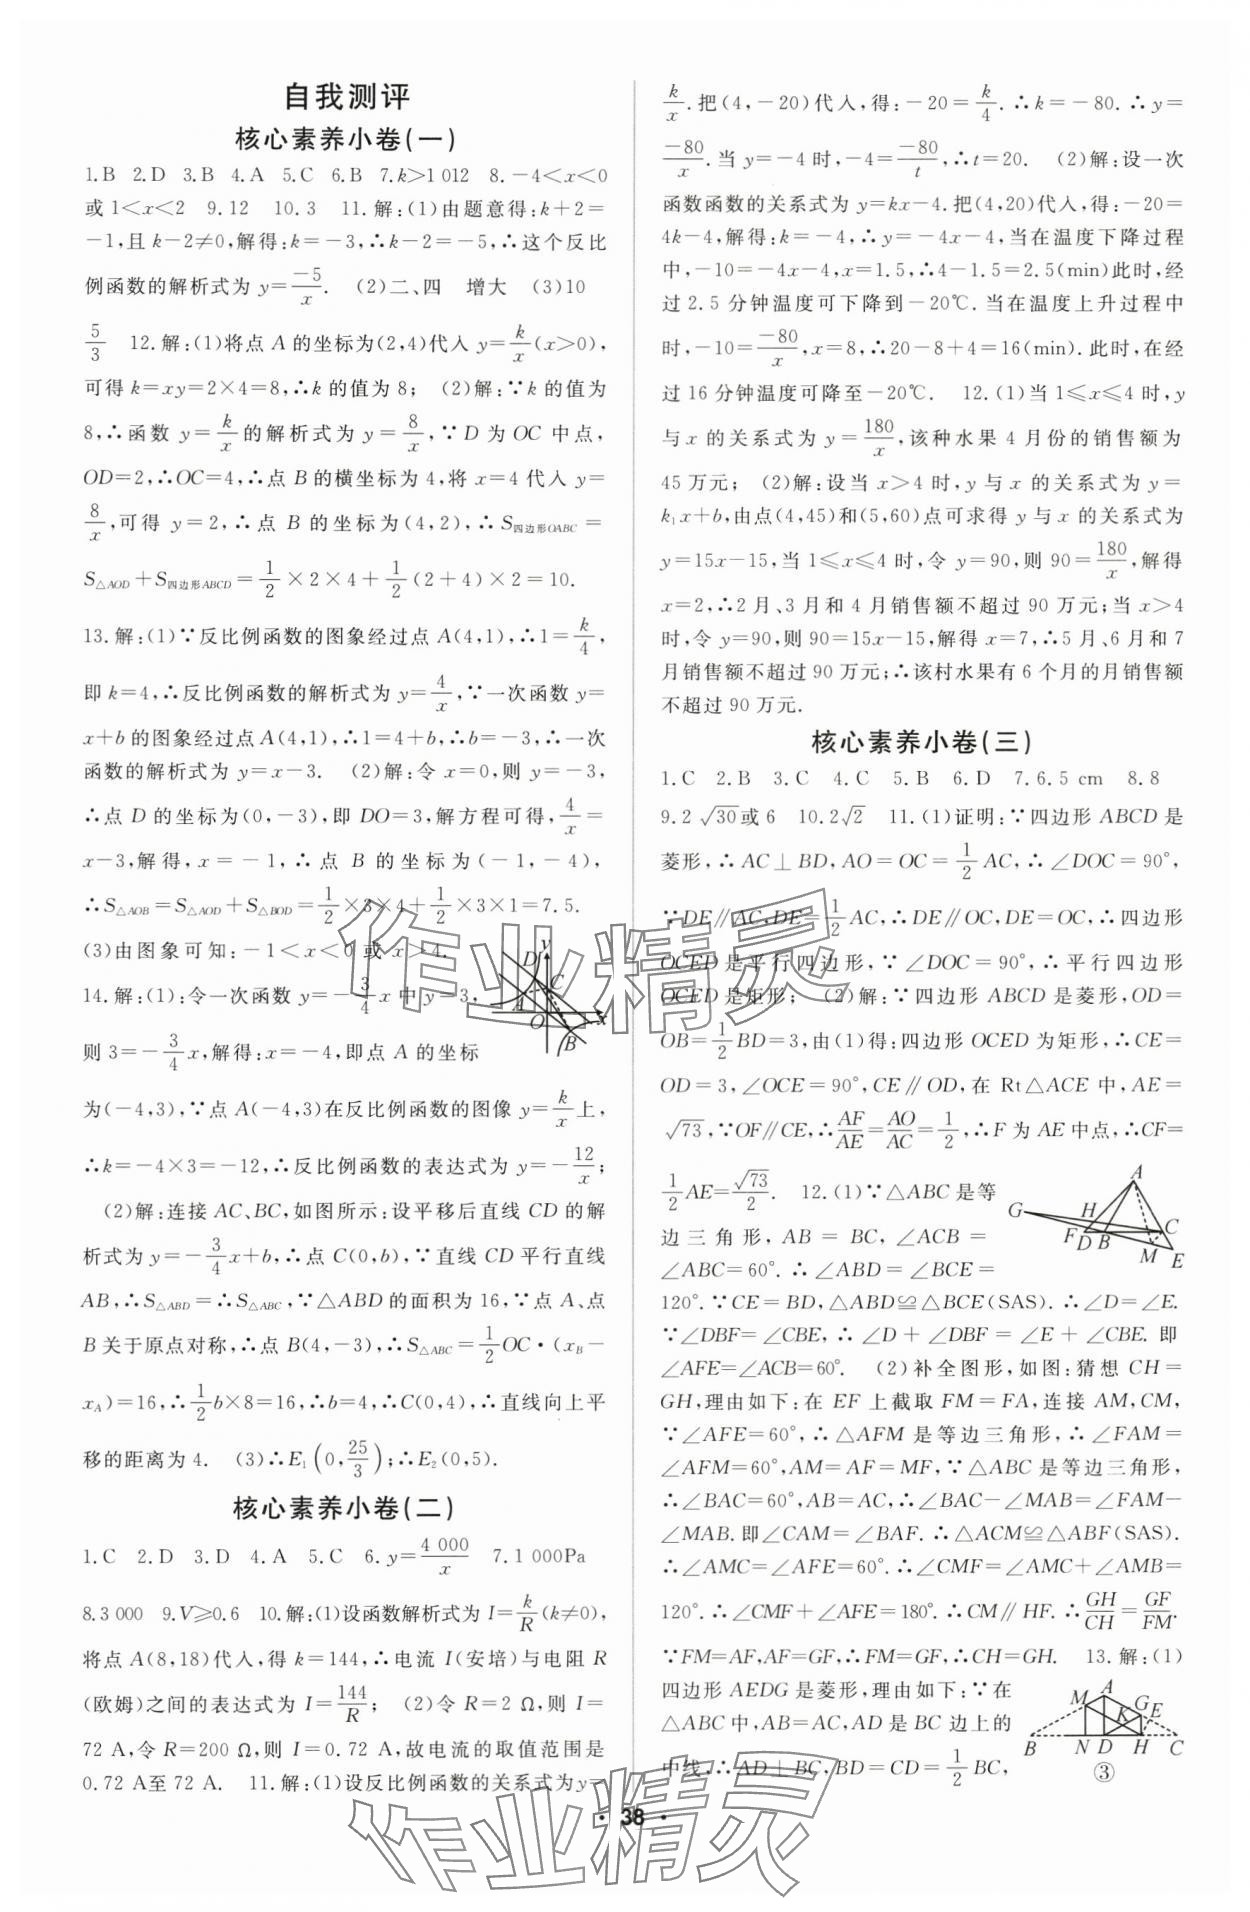 自我测评
核心素养小卷(一)
1.B 2.D 3.B 4.A 5.C 6.B 7.k>1 012 8.-4<x<0
或1<x<2 9.12 10.3 11.解:(1)由题意得:k+2=
-1,且k-2≠0,解得:k=-3,∴k-2=-5,∴这个反比
例函数的解析式为 y=-5/x. (2)二、四 增大 (3)10
5/3 12.解:(1)将点 A 的坐标为(2,4)代入 y=k/x(x>0),
可得 k=xy=2×4=8,∴k 的值为8; (2)解:∵k 的值为
8,∴函数 y=k/x 的解析式为 y=8/x,∵D 为 OC 中点,
OD=2,∴OC=4,∴点 B 的横坐标为 4,将 x=4 代入 y=
8/x,可得 y=2,∴点 B 的坐标为(4,2),∴S四边形OABC=
S△AOD+S四边形ABCD=1/2×2×4+1/2(2+4)×2=10.
13.解:(1)∵反比例函数的图象经过点 A(4,1),∴1=k/4,
即 k=4,∴反比例函数的解析式为 y=4/x,∵一次函数 y=
x+b 的图象经过点A(4,1),∴1=4+b,∴b=-3,∴一次
函数的解析式为 y=x-3. (2)解:令 x=0,则 y=-3,
∴点 D 的坐标为(0,-3),即 DO=3,解方程可得,4/x=
x-3,解得,x=-1,∴点 B 的坐标为(-1,-4),
∴S△AOB=S△AOD+S△BOD=1/2×3×4+1/2×3×1=7.5.
(3)由图象可知:-1<x<0 或 x>4.
14.解:(1):令一次函数 y=-3/4x 中 y=3,
则 3=-3/4x,解得:x=-4,即点 A 的坐标
为(-4,3),∵点 A(-4,3)在反比例函数的图像 y=k/x上,
∴k=-4×3=-12,∴反比例函数的表达式为 y=-12/x;
(2)解:连接 AC、BC,如图所示:设平移后直线 CD 的解
析式为 y=-3/4x+b,∴点 C(0,b),∵直线 CD 平行直线
AB,∴S△ABD=∴S△ABC,∵△ABD 的面积为 16,∵点 A、点
B 关于原点对称,∴点 B(4,-3),∴S△ABC=1/2OC·(xB-
xA)=16,∴1/2b×8=16,∴b=4,∴C(0,4),∴直线向上平
移的距离为 4. (3)∴E1(0,25/3);∴E2(0,5).
y
D
C
A
O
x
B
核心素养小卷(二)
1.C 2.D 3.D 4.A 5.C 6.y=4 000/x 7.1 000Pa
8.3 000 9.V≥0.6 10.解:(1)设函数解析式为 I=k/R(k≠0),
将点 A(8,18)代入,得 k=144,∴电流 I(安培)与电阻 R
(欧姆)之间的表达式为 I=144/R; (2)令 R=2 Ω,则 I=
72 A,令 R=200 Ω,则 I=0.72 A,故电流的取值范围是
0.72 A至 72 A. 11.解:(1)设反比例函数的关系式为y=
k/x.把(4,-20)代入,得:-20=k/4.∴k=-80.∴y=
-80/x.当 y=-4 时,-4=-80/t,∴t=20. (2)解:设一次
函数函数的关系式为 y=kx-4.把(4,20)代入,得:-20=
4k-4,解得:k=-4,∴y=-4x-4,当在温度下降过程
中,-10=-4x-4,x=1.5,∴4-1.5=2.5(min)此时,经
过 2.5 分钟温度可下降到-20℃.当在温度上升过程中
时,-10=-80/x,x=8,∴20-8+4=16(min).此时,在经
过 16 分钟温度可降至-20℃. 12.(1)当 1≤x≤4 时,y
与 x 的关系式为 y=180/x,该种水果 4 月份的销售额为
45 万元; (2)解:设当 x>4 时,y 与 x 的关系式为 y=
k1x+b,由点(4,45)和(5,60)点可求得 y 与 x 的关系式为
y=15x-15,当 1≤x≤4 时,令 y=90,则 90=180/x,解得
x=2,∴2 月、3 月和 4 月销售额不超过 90 万元;当 x>4
时,令 y=90,则 90=15x-15,解得 x=7,∴5 月、6 月和 7
月销售额不超过 90 万元;∴该村水果有 6 个月的月销售额
不超过 90 万元.
核心素养小卷(三)
1.C 2.B 3.C 4.C 5.B 6.D 7.6.5 cm 8.8
9.2√30或 6 10.2√2 11.(1)证明:∵四边形 ABCD 是
菱形,∴AC⊥BD,AO=OC=1/2AC,∴∠DOC=90°,
∵DE∥AC,DE=1/2AC,∴DE∥OC,DE=OC,∴四边形
OCED是平行四边形,∵∠DOC=90°,∴平行四边形
OCED是矩形; (2)解:∵四边形 ABCD 是菱形,OD=
OB=1/2BD=3,由(1)得:四边形 OCED 为矩形,∴CE=
OD=3,∠OCE=90°,CE∥OD,在 Rt△ACE 中,AE=
√73,∵OF∥CE,∴AF/AE=AO/AC=1/2,∴F 为 AE中点,∴CF=
1/2AE=√73/2. 12.(1)∵△ABC是等
边三角形,AB=BC,∠ACB=
∠ABC=60°.∴∠ABD=∠BCE=
A
G H C
F D B M E
120°.∵CE=BD,△ABD≌△BCE(SAS).∴∠D=∠E.
∵∠DBF=∠CBE,∴∠D+∠DBF=∠E+∠CBE.即
∠AFE=∠ACB=60°. (2)补全图形,如图:猜想 CH=
GH,理由如下:在 EF 上截取 FM=FA,连接 AM,CM,
∵∠AFE=60°,∴△AFM 是等边三角形,∴∠FAM=
∠AFM=60°,AM=AF=MF,∵△ABC是等边三角形,
∴∠BAC=60°,AB=AC,∴∠BAC-∠MAB=∠FAM-
∠MAB.即∠CAM=∠BAF.∴△ACM≌△ABF(SAS).
∴∠AMC=∠AFE=60°.∴∠CMF=∠AMC+∠AMB=
120°.∴∠CMF+∠AFE=180°.∴CM∥HF.∴GH/CH=GF/FM.
∵FM=AF,AF=GF,∴FM=GF,∴CH=GH. 13.解:(1)
四边形 AEDG 是菱形,理由如下:∵在
△ABC中,AB=AC,AD 是 BC 边上的
中线,∴AD⊥BC,BD=CD=1/2BC,
M A G
K E
B N D H C
③
作业精灵
作业精灵
·38·